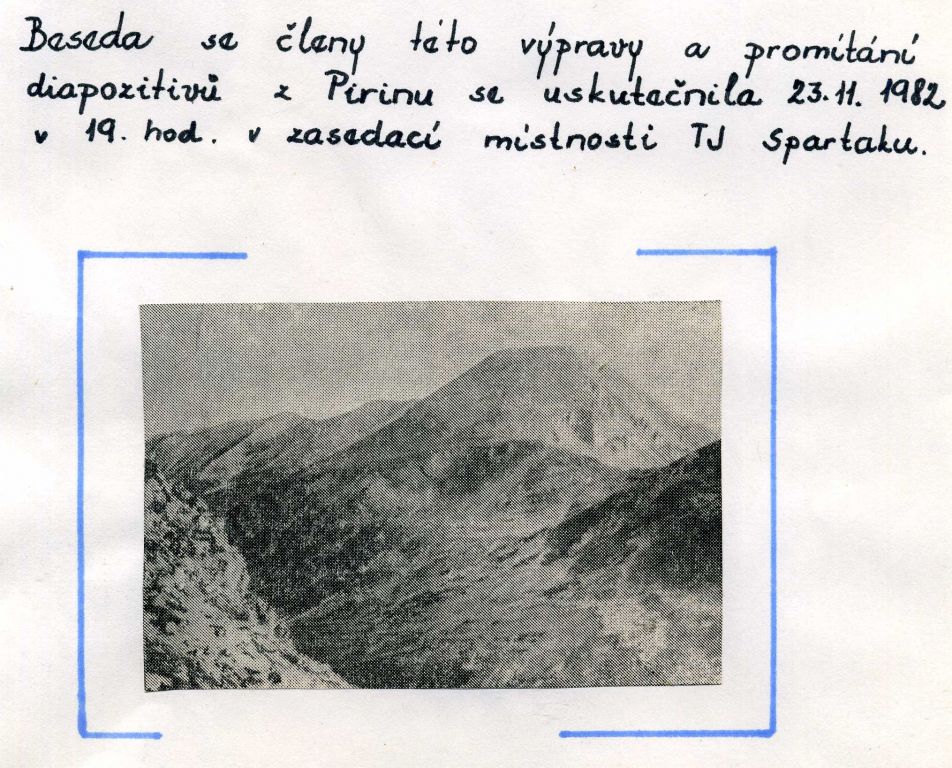 Beseda se členy této výpravy a promítání
diapozitivů z Pirinu se uskutečnila 23.11. 1982
v 19. hod. v zasedací místnosti TJ Spartaku.